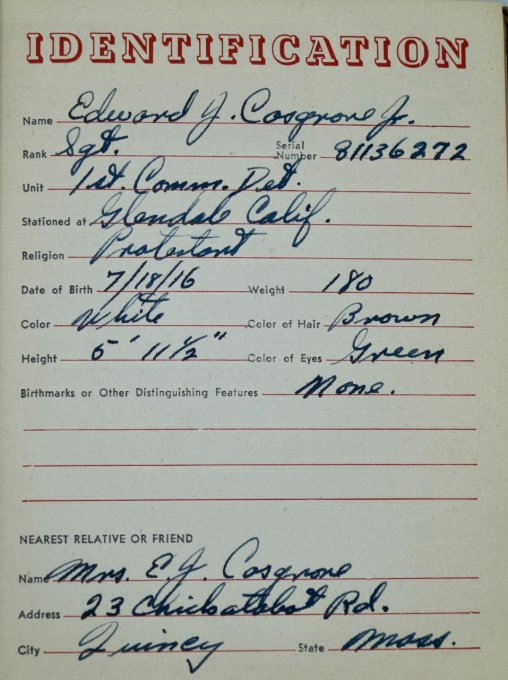 IDENTIFICATION
Name Edward J. Cosgrove Jr.
Rank Sgt. Serial Number 81136272
Unit 1st. Comm. Det.
Stationed at Glendale Calif.
Religion Protestant
Date of Birth 7/18/16 Weight 180
Color White Color of Hair Brown
Height 5' 11 1/2" Color of Eyes Green
Birthmarks or Other Distinguishing Features None.
NEAREST RELATIVE OR FRIEND
Name Mrs. E. J. Cosgrove
Address 23 Chickatabot Rd.
City Quincy State Mass.